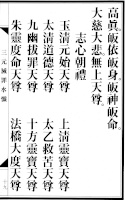 高真皈依皈身皈神皈命。
大慈大悲無上天尊
志心朝禮
玉清元始天尊
上清靈寶天尊
太清道德天尊
太乙救苦天尊
九幽拔罪天尊
十方靈寶天尊
朱靈度命天尊
法橋大度天尊
三元滅罪水懺